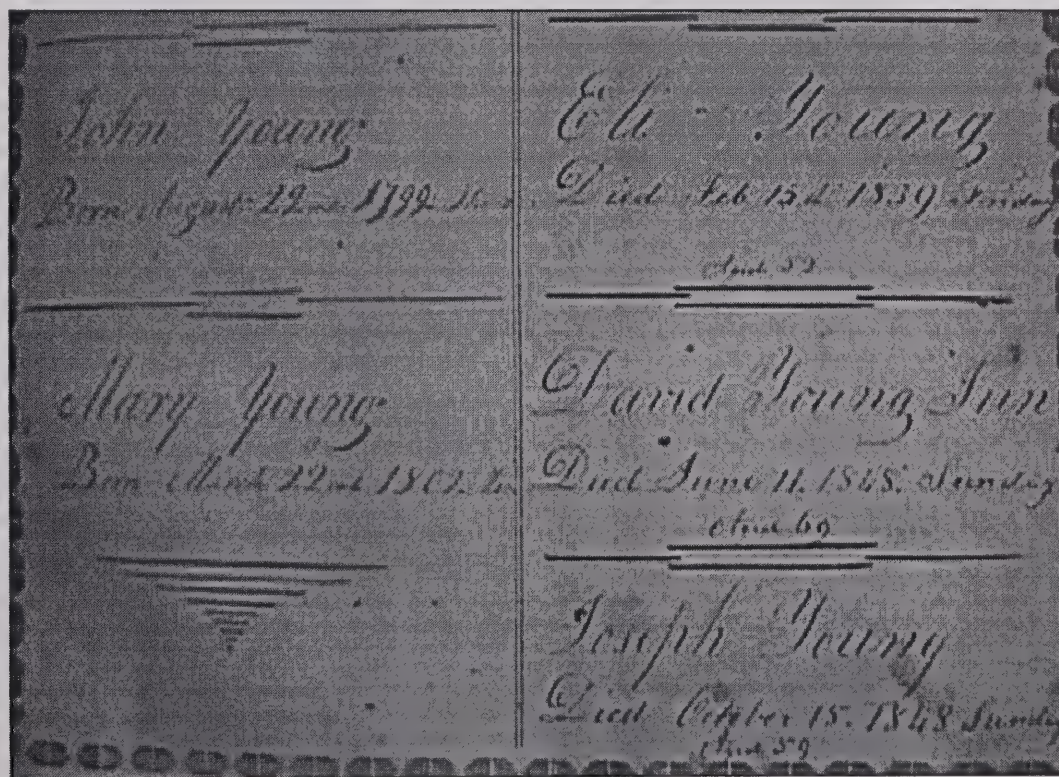 John Young
Born August 22nd 1799.
Mary Young
Born March 22nd 1802.
Eli Young
Died Feb 15th 1839 Friday
Aged 52
David Young Jun
Died June 11. 1848. Sunday
Aged 69
Joseph Young
Died October 15. 1848 Sunday
Aged 59